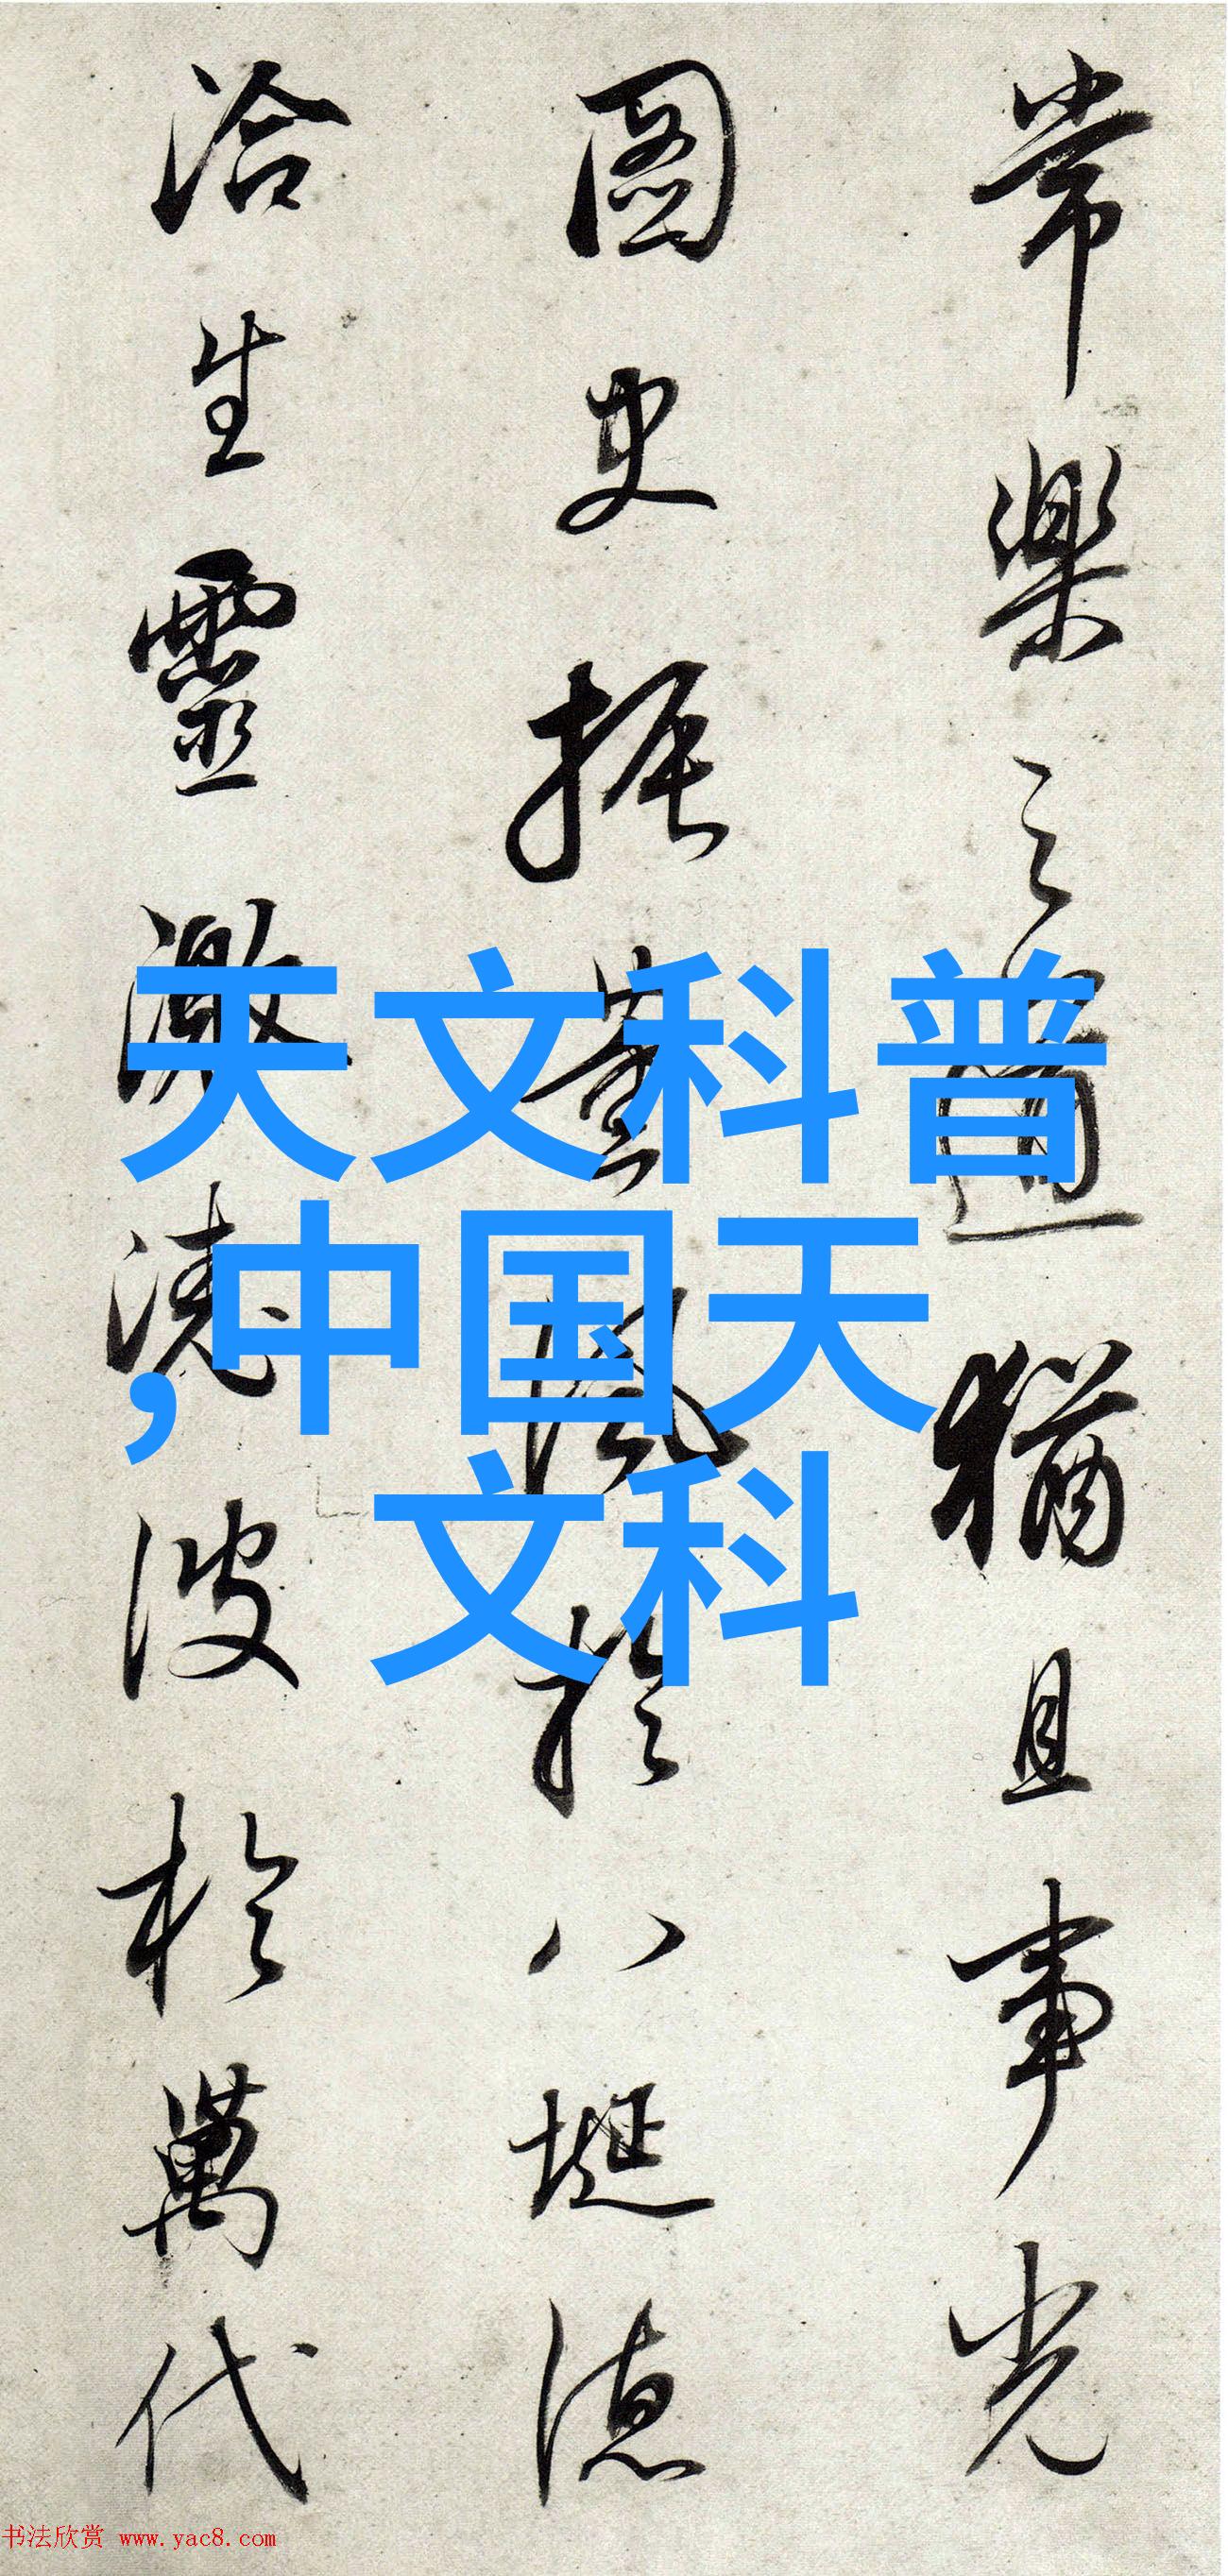 常樂之道猶且事光
圖史振薰風於八埏德
洽生靈激清波於萬代
天文科普
,中国天
文科
书法欣赏 www.yac8.com